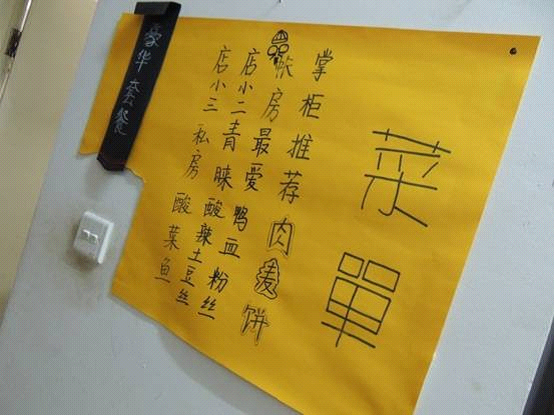 菜單
掌柜推荐 肉麦饼
帐房最爱 鸭血粉丝
店小二青睐 酸辣土豆丝
店小三 私房 酸菜鱼
豪华套餐